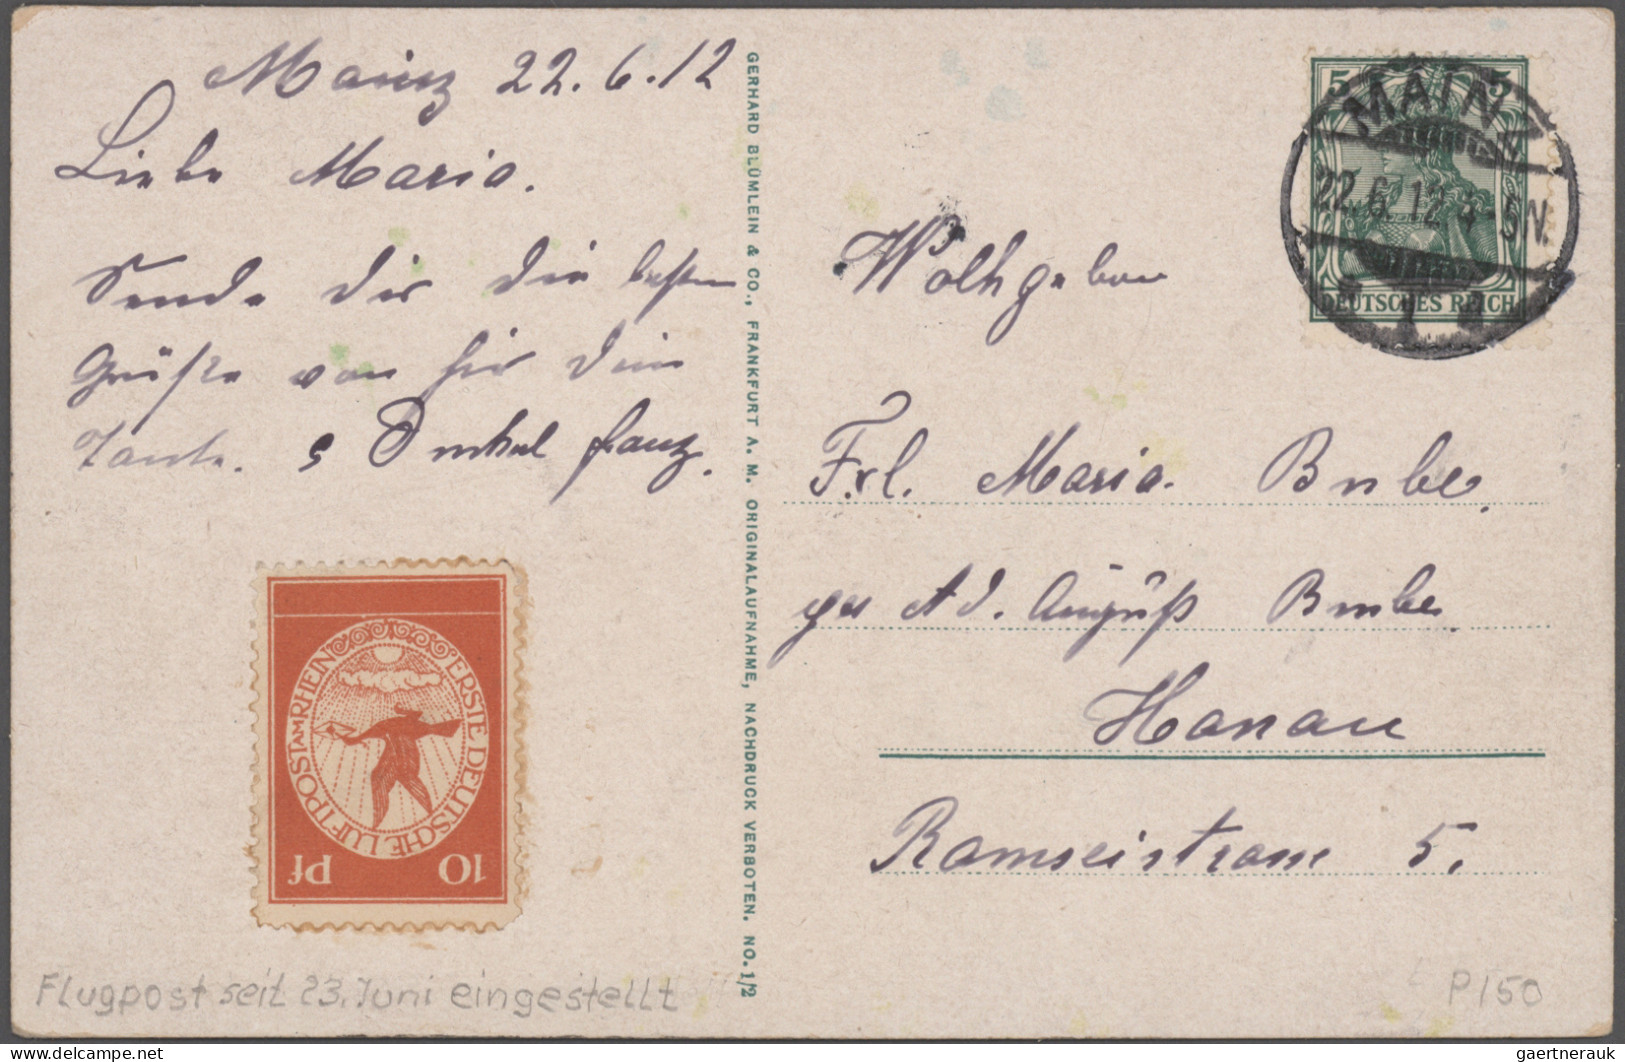 Mainz 22.6.12
Liebe Maria.
Sende dir die besten
Grüße von hir dein
Tante. & Onkel Franz.
GERHARD BLÜMLEIN & CO., FRANKFURT A. M. ORIGINALAUFNAHME, NACHDRUCK VERBOTEN. NO. 1/2
5 5
DEUTSCHES REICH
MAINZ
22.6.12.4-5N.
Wolhgebon
Frl. Maria Bube
Ad. August Bube
Hanau
Ramseistrase 5.
ERSTE DEUTSCHE LUFTPOST AM RHEIN
10 Pf
Flugpost seit 23. Juni eingestellt
P150
gaertnerauk